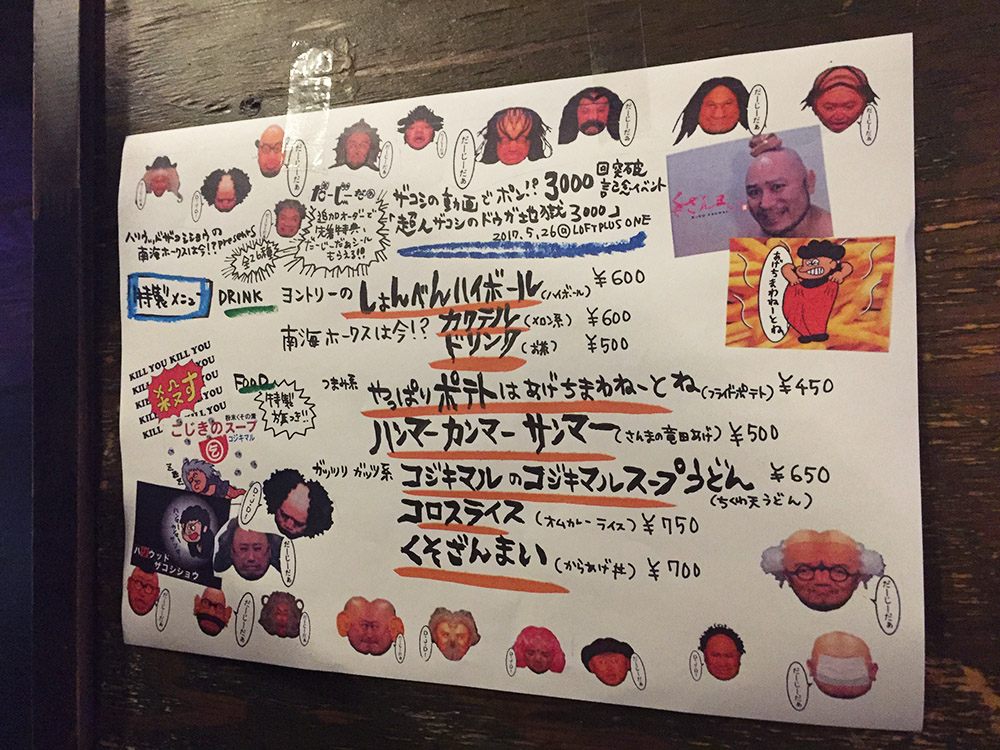 だーじーだぁ
だーじーだぁ
だーじーだぁ
だーじーだぁ
だーじーだぁ
だーじーだぁ
ザコシの動画でポン!! 3000回突破記念イベント
「超人ザコシのドウガ地獄3000」
2017.5.26㊎ LOFT PLUS ONE
ハリウッドザコシショウの
南海ホークスは今!? presents
全26種
追加オーダーで
先着特典、
だーじーだぁシール
もらえる!!!
くさんま
あげちまわねーとね
特製メニュー
DRINK
ヨントリーの しょんべんハイボール (ハイボール) ¥600
南海ホークスは今!? カクテル (メロン系) ¥600
ドリンク (お茶) ¥500
KILL YOU KILL YOU
KILL YOU
KILL
殺す
粉末くその素
こじきのスープ
コジキマル
FOOD
特製旗つき!!
つまみ系 やっぱりポテトはあげちまわねーとね (フライドポテト) ¥450
ハンマーカンマーサンマー (さんまの竜田あげ) ¥500
ガッツリ ガッツ系 コジキマルのコジキマルスープうどん (ちくわ天うどん) ¥650
コロスライス (オムカレーライス) ¥750
くそざんまい (からあげ丼) ¥700
ハリウッド
ザコシショウ
だーじーだぁ
だーじーだぁ
だーじーだぁ
だーじーだぁ